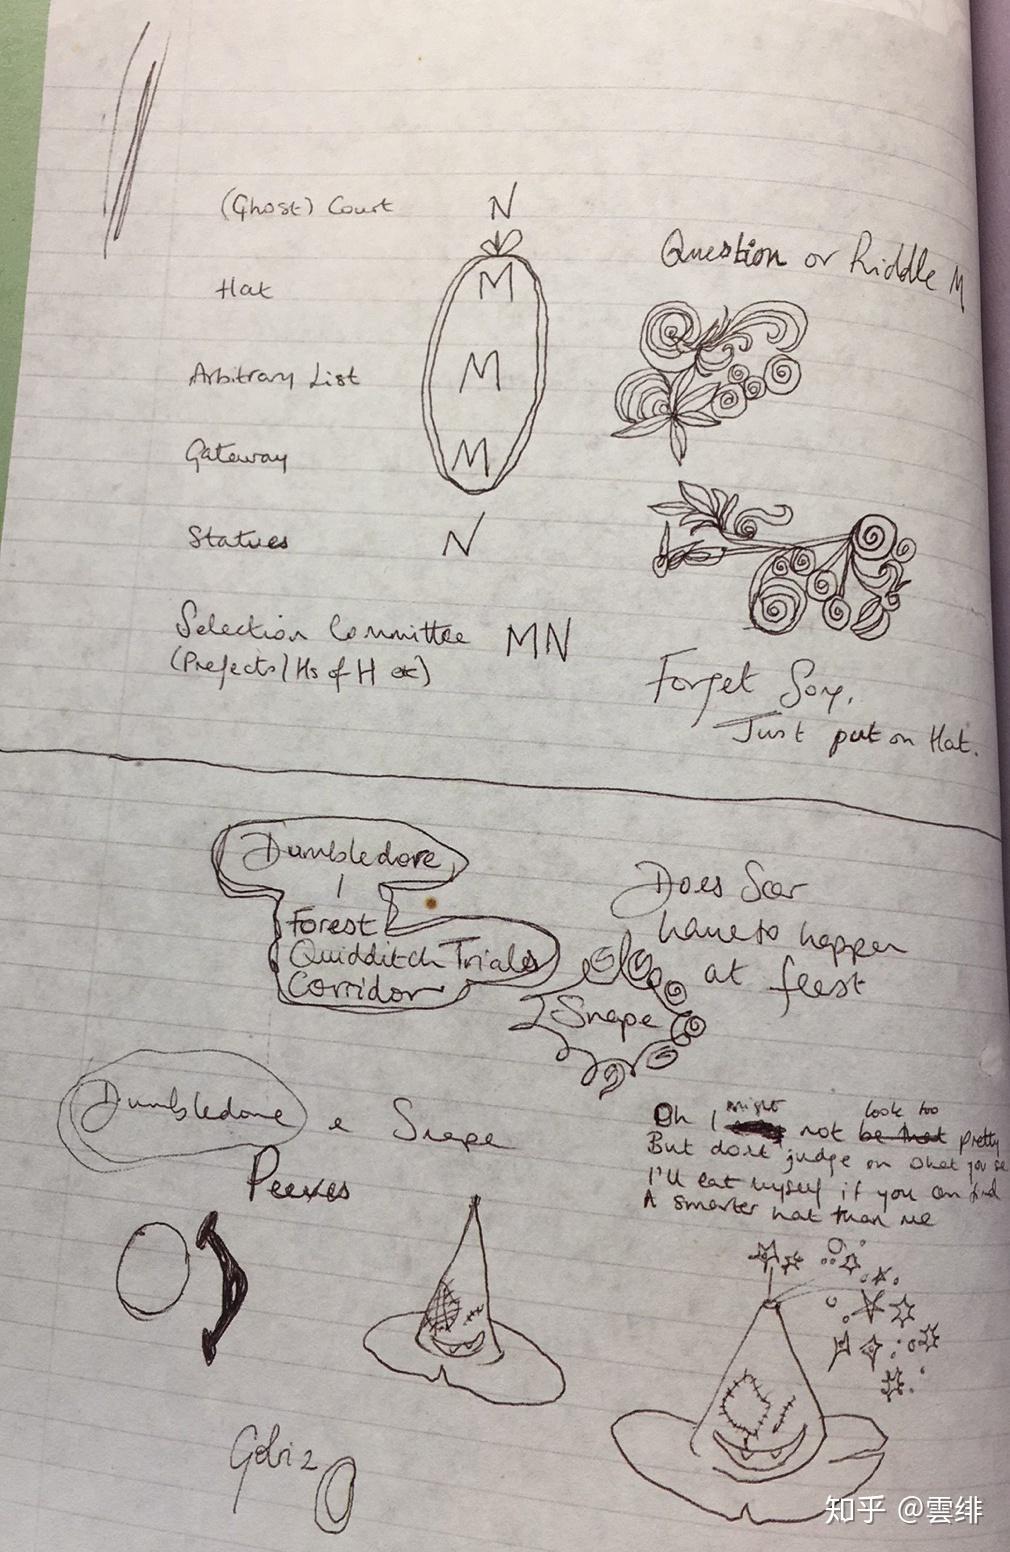 (Ghost) Court N
Hat M
Arbitrary List M
Gateway M
Statues N
Selection Committee MN
(Prefects/Hs of H etc)
Question or Riddle M
Forget Song,
Just put on Hat.
Dumbledore
Forest
Quidditch Trials
Corridor
Snape
Does Scar
have to happen
at feast
Dumbledore e Snape
Peeves
Oh I might not look too be that pretty
But dont judge on what you see
I'll eat myself if you can find
A smarter hat than me
知乎 @雲绯